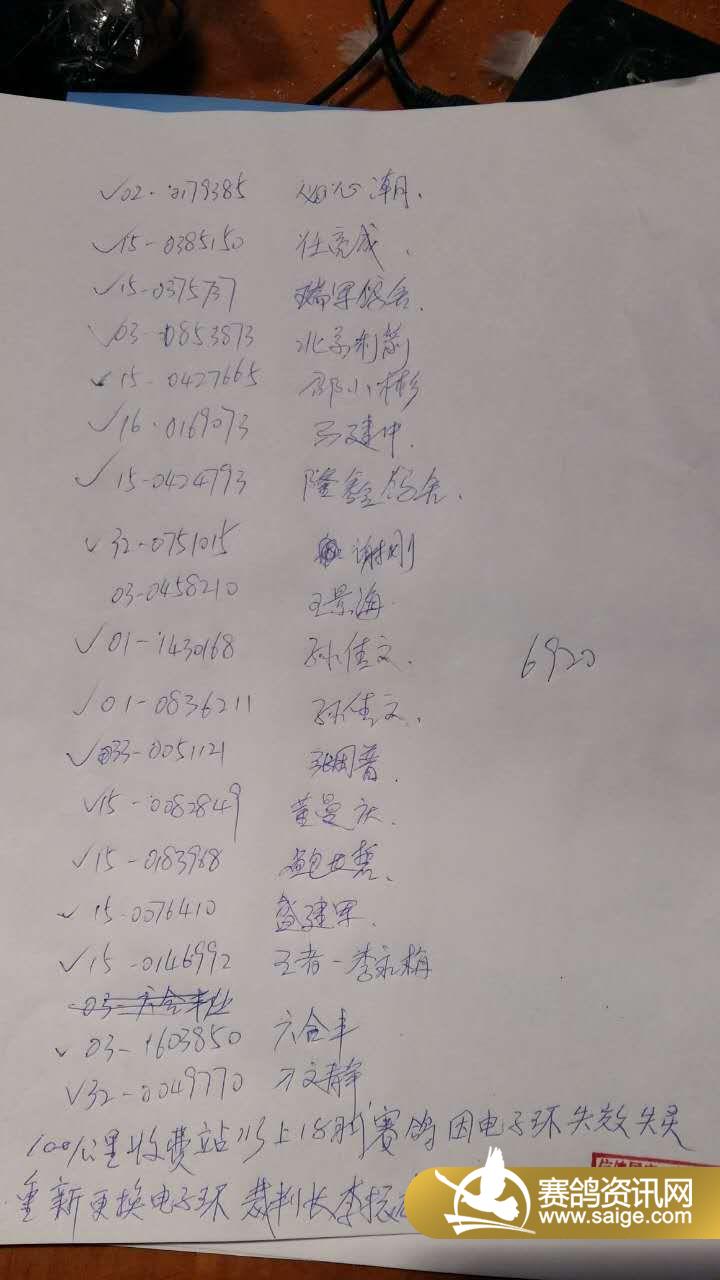 ✓02-0179385 沁潮.
✓15-0385150 任亮成.
✓15-0375737 瑞军鸽舍.
✓03-0853873 北京利箭
✓15-0427665 邵小彬
✓16-0169073 建中.
✓15-0424793 隆鑫鸽舍.
✓32-0751015 谢刚
03-0458210 王景海.
✓01-1430168 孙佳文. 6920
✓01-0836211 孙佳文.
✓033-0051121
✓15-0082849 黄曼
✓15-0183968 鲍世哲.
✓15-0076410 建军.
✓15-0146992 王者-李永梅
03-六合丰业
✓03-1603850 六合丰
✓32-0049770 刁文静
100公里收费站以上18羽赛鸽因电子环失效失灵
重新更换电子环 裁判长李振
赛鸽资讯网
www.saige.com